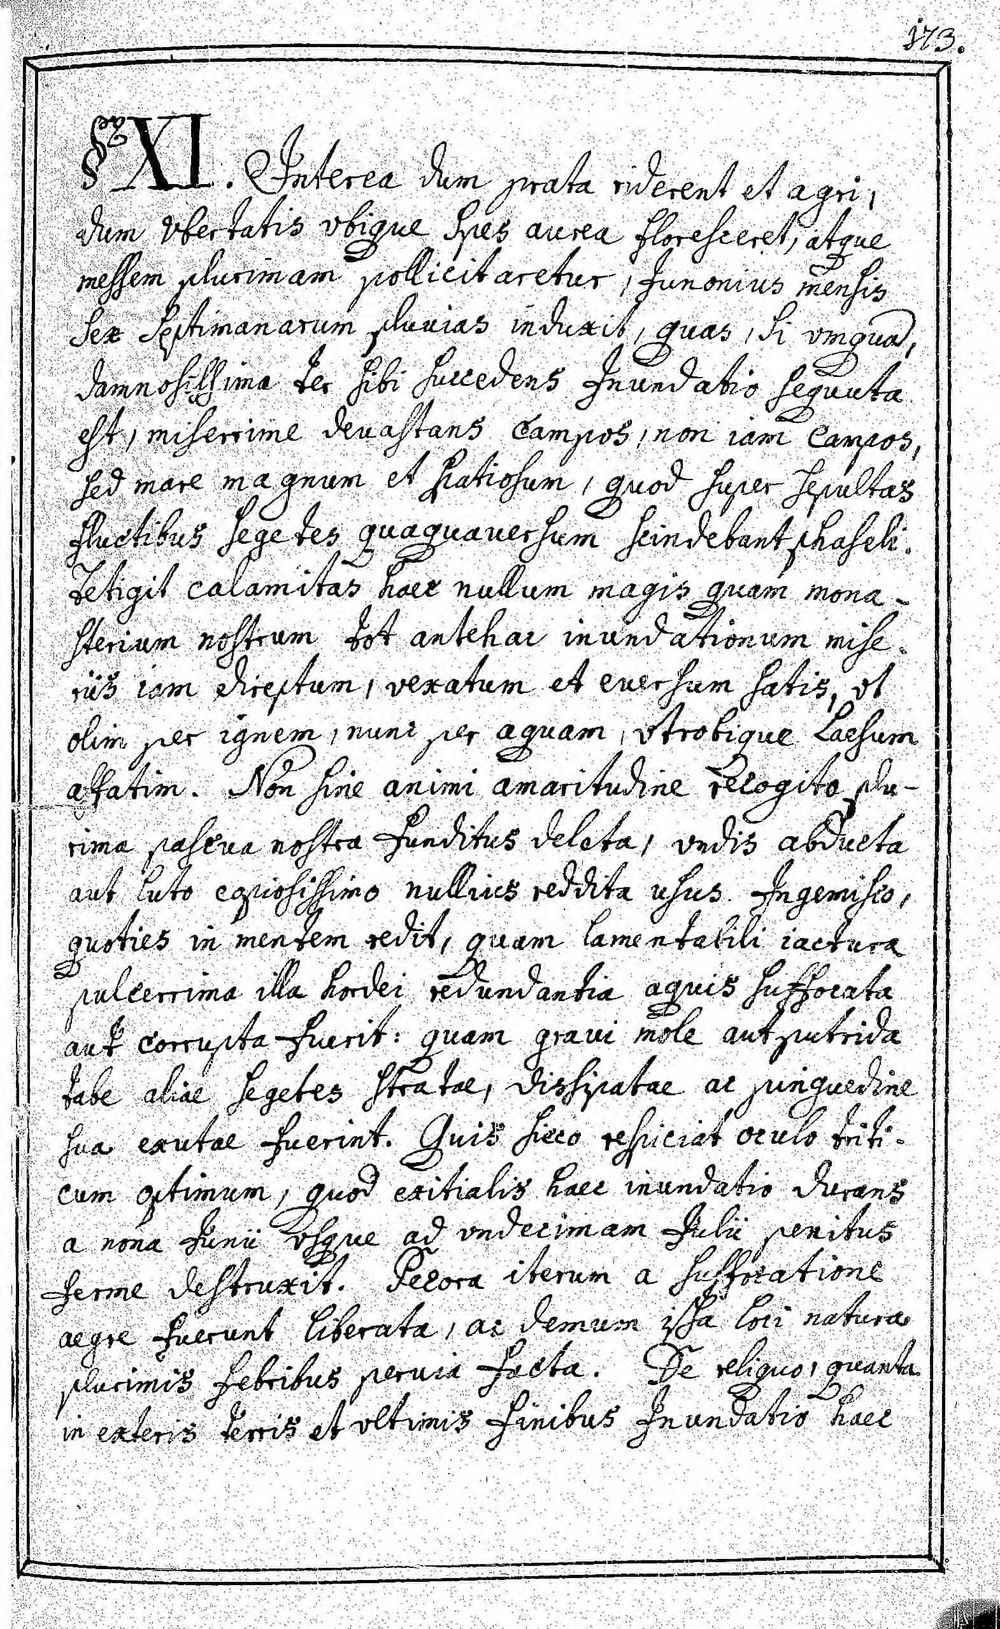 173.
§us XI. Interea dum prata riderent et agri,
dum vbertatis vbique spes aurea floresceret, atque
messem plurimam pollicitaretur, Junonius mensis
sex septimanarum pluuias induxit, quas, si vmquā,
damnosissima ter sibi succedens Inundatio sequuta
est, miserrime deuastans campos, non iam campos,
sed mare magnum et spatiosum, quod super sepultas
fluctibus segetes quaquauersum scindebant phaseli.
Tetigit calamitas haec nullum magis quam mona-
sterium nostrum tot antehac inundationum mise-
riis iam direptum, vexatum et euersum satis, vt
olim per ignem, nunc per aquam, vtrobique laesum
affatim. Non sine animi amaritudine recogito plu-
rima pascua nostra funditus deleta, vndis abducta
aut luto copiosissimo nullius reddita usus. Ingemisco,
quoties in mentem redit, quam lamentabili iactura
pulcerrima illa hordei redundantia aquis suffocata
aut corrupta fuerit: quam graui mole aut putrida
tabe aliae segetes stratae, dissipatae ac pinguedine
sua exutae fuerint. Quis sicco respiciat oculo triti-
cum optimum, quod exitialis haec inundatio durans
a nona Junii vsque ad vndecimam Julii penitus
ferme destruxit. Pecora iterum a suffocatione
aegre fuerunt liberata, ac demum ipsa loci natura
plurimis febribus peruia facta. De reliquo, quanta
in exteris terris et vltimis finibus Inundatio haec